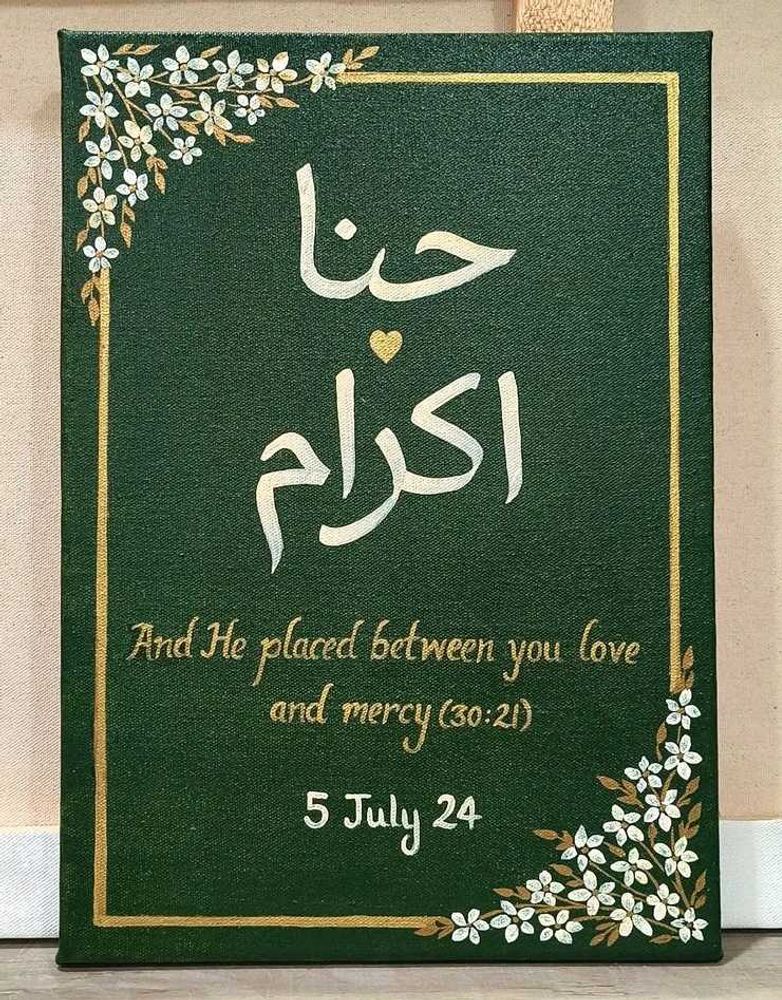 حنا
اكرام
And He placed between you love
and mercy (30:21)
5 July 24